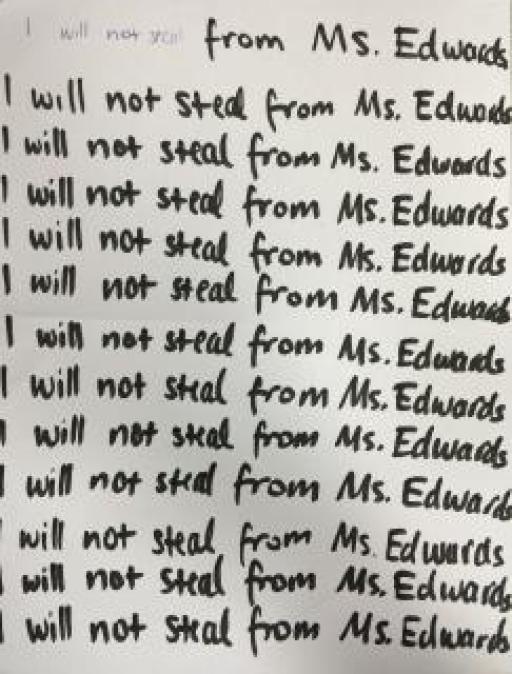 I will not steal from Ms. Edwards
I will not steal from Ms. Edwards
I will not steal from Ms. Edwards
I will not steal from Ms. Edwards
I will not steal from Ms. Edwards
I will not steal from Ms. Edwards
I will not steal from Ms. Edwards
I will not steal from Ms. Edwards
I will not steal from Ms. Edwards
I will not steal from Ms. Edwards
I will not steal from Ms. Edwards
I will not steal from Ms. Edwards
I will not steal from Ms. Edwards